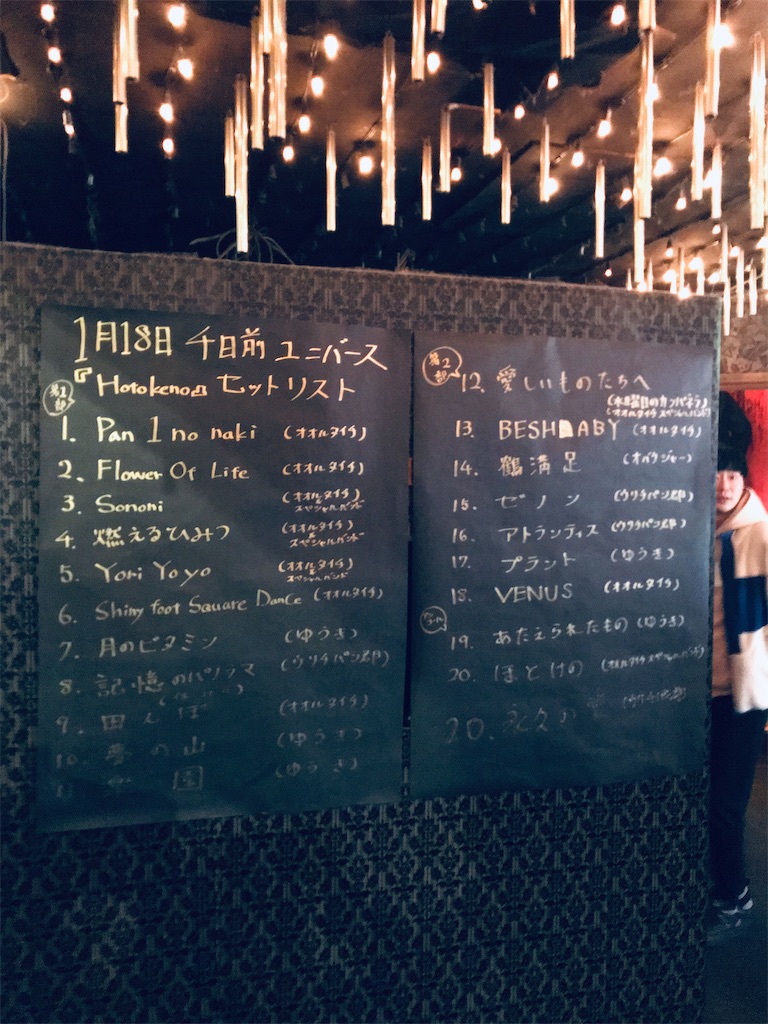 1月18日 千日前 ユニバース
『Hotokeno』 セットリスト
第1部
1. Pan 1 no naki (オオルタイチ)
2. Flower Of Life (オオルタイチ)
3. Sononi (オオルタイチ & スペシャルバンド)
4. 燃えるひみつ (オオルタイチ & スペシャルバンド)
5. Yori Yoyo (オオルタイチ & スペシャルバンド)
6. Shiny foot Sauare Dance (オオルタイチ)
7. 月のビタミン (ゆうき)
8. 記憶のパノラマ (ウリチパン郡)
9. 田んぼ (オオルタイチ)
10. 夢の山 (ゆうき)
11. 園 (ゆうき)
第2部
12. 愛しいものたちへ
(水曜日のカンパネラ)
(オオルタイチ スペシャルバンド)
13. BESHBABY (オオルタイチ)
14. 鶴満足 (オバケジャー)
15. ゼノン (ウリチパン郡)
16. アトランティス (ウリチパン郡)
17. プラント (ゆうき)
18. VENUS (オオルタイチ)
19. あたえられたもの (ゆうき)
20. ほとけの (オオルタイチ スペシャルバンド)
20. 永久の (ウリチパン郡)